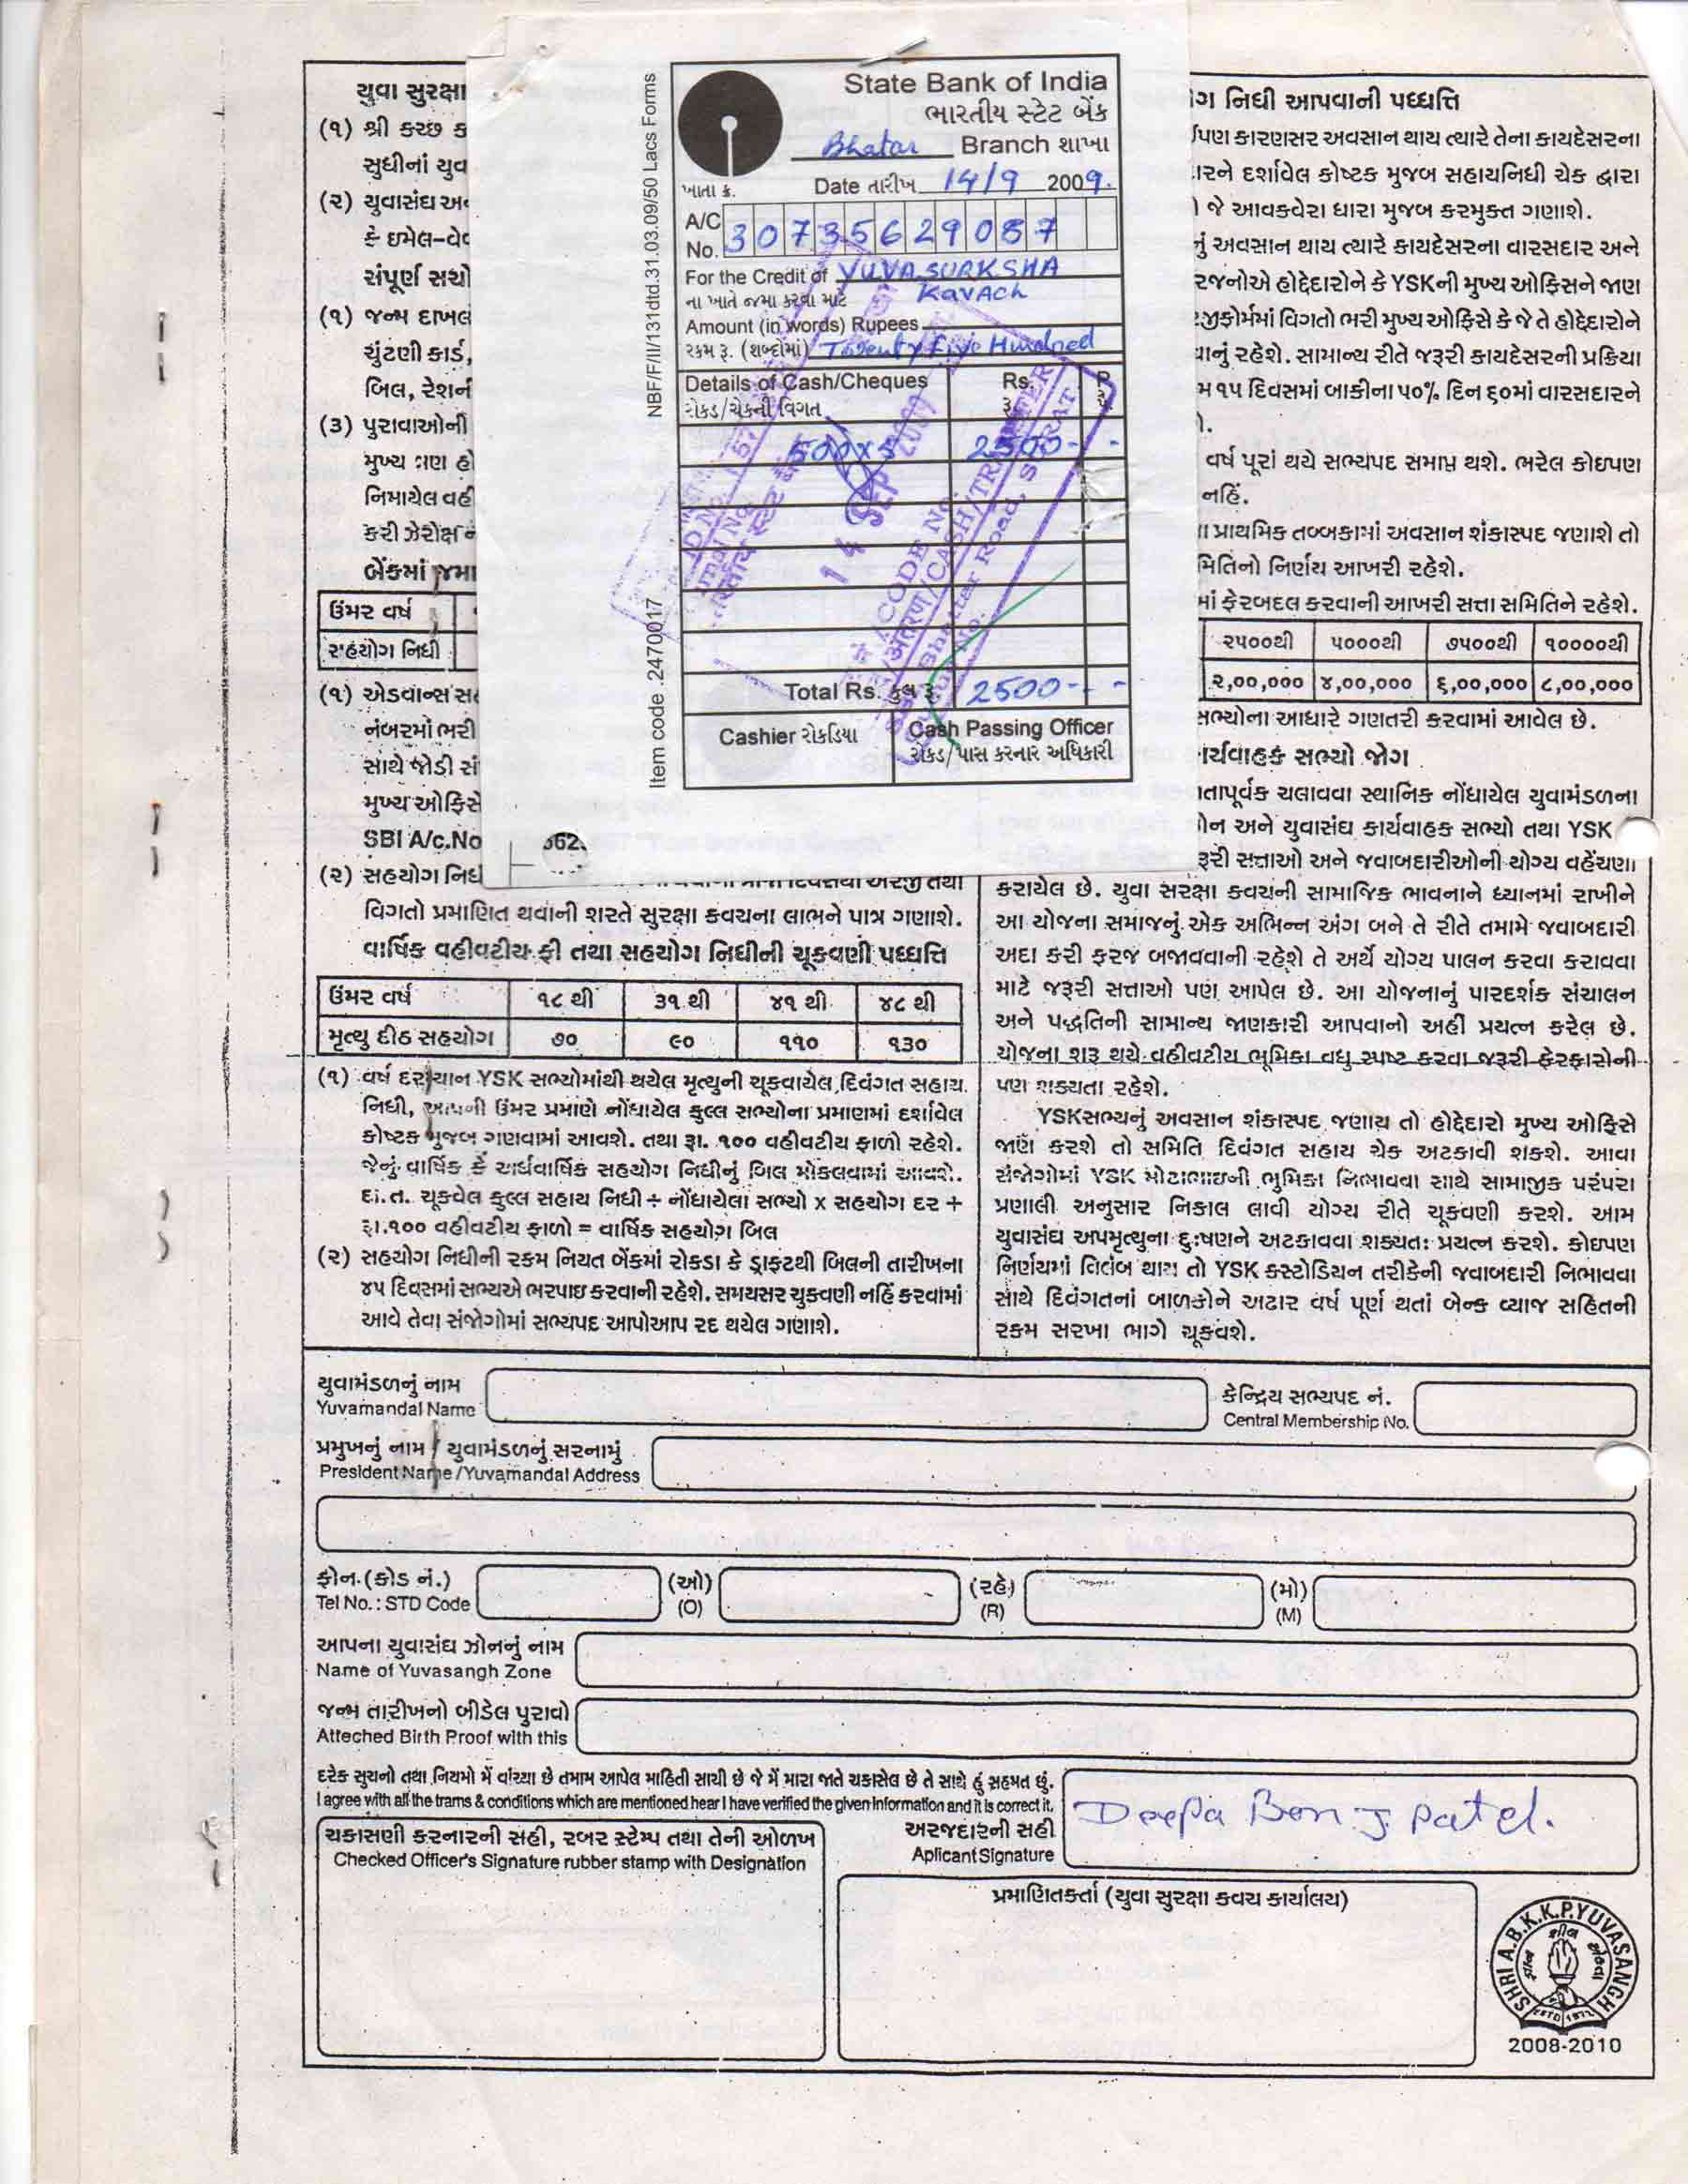 યુવા સુરક્ષા
(૧) શ્રી કચ્છ ક
સુધીનાં યુવ
(૨) યુવાસંઘ અ
કે ઇમેલ-વે
સંપૂર્ણ સચો
(૧) જન્મ દાખલ
ચુંટણી કાર્ડ,
બિલ, રેશન
(૩) પુરાવાઓની
મુખ્ય ત્રણ હો
નિમાયેલ વહી
કરી ઝેરોક્ષ ન
બેંકમાં જમા
ઉંમર વર્ષ
સહયોગ નિધી
(૧) એડવાન્સ સ
નંબરમાં ભરી
સાથે જોડી સં
મુખ્ય ઓફિસે
SBI A/c.No
(૨) સહયોગ નિધ
અરજી તથા
વિગતો પ્રમાણિત થવાની શરતે સુરક્ષા કવચના લાભને પાત્ર ગણાશે.
વાર્ષિક વહીવટીય ફી તથા સહયોગ નિધીની ચૂકવણી પધ્ધતિ
ઉંમર વર્ષ ૧૮ થી ૩૧ થી ૪૧ થી ૪૮ થી
મૃત્યુ દીઠ સહયોગ ૭૦ ૯૦ ૧૧૦ ૧૩૦
(૧) વર્ષ દરમ્યાન YSK સભ્યોમાંથી થયેલ મૃત્યુની ચૂકવાયેલ દિવંગત સહાય
નિધી, આપની ઉંમર પ્રમાણે નોંધાયેલ કુલ્લ સભ્યોના પ્રમાણમાં દર્શાવેલ
કોષ્ટક મુજબ ગણવામાં આવશે. તથા રૂા. ૧૦૦ વહીવટીય ફાળો રહેશે.
જેનું વાર્ષિક કે અર્ધવાર્ષિક સહયોગ નિધીનું બિલ મોકલવામાં આવશે.
દા.ત. ચૂકવેલ કુલ્લ સહાય નિધી ÷ નોંધાયેલા સભ્યો x સહયોગ દર +
રૂા.૧૦૦ વહીવટીય ફાળો = વાર્ષિક સહયોગ બિલ
(૨) સહયોગ નિધીની રકમ નિયત બેંકમાં રોકડા કે ડ્રાફટથી બિલની તારીખના
૪૫ દિવસમાં સભ્યએ ભરપાઇ કરવાની રહેશે. સમયસર ચુકવણી નહિં કરવામાં
આવે તેવા સંજોગોમાં સભ્યપદ આપોઆપ રદ થયેલ ગણાશે.
NBF/F/II/131dtd.31.03.09/50 Lacs Forms
Item code .2470017
State Bank of India
ભારતીય સ્ટેટ બેંક
Bhatar Branch શાખા
ખાતા ક્ર. Date તારીખ 14/9 2009.
A/C No. 30735629087
For the Credit of YUVA SURKSHA
ના ખાતે જમા કરવા માટે Kavach
Amount (in words) Rupees
રકમ રૂ. (શબ્દોમાં) Twenty Five Hundred
Details of Cash/Cheques Rs. P
રોકડ/ચેકની વિગત રૂ
500x5 2500-
14 SEP 2009
Total Rs. કુલ રૂ. 2500-
Cashier રોકડિયા
Cash Passing Officer
રોકડ/પાસ કરનાર અધિકારી
ગ નિધી આપવાની પધ્ધતિ
પણ કારણસર અવસાન થાય ત્યારે તેના કાયદેસરના
રને દર્શાવેલ કોષ્ટક મુજબ સહાયનિધી ચેક દ્વારા
જે આવકવેરા ધારા મુજબ કરમુક્ત ગણાશે.
નું અવસાન થાય ત્યારે કાયદેસરના વારસદાર અને
રજનોએ હોદ્દેદારોને કે YSKની મુખ્ય ઓફિસને જાણ
જીફોર્મમાં વિગતો ભરી મુખ્ય ઓફિસે કે જે તે હોદ્દેદારોને
વાનું રહેશે. સામાન્ય રીતે જરૂરી કાયદેસરની પ્રક્રિયા
મ ૧૫ દિવસમાં બાકીના ૫૦% દિન ૬૦માં વારસદારને
વર્ષ પૂરાં થયે સભ્યપદ સમાપ્ત થશે. ભરેલ કોઇપણ
નહિં.
પ્રાથમિક તબ્બકામાં અવસાન શંકાસ્પદ જણાશે તો
મિતિનો નિર્ણય આખરી રહેશે.
માં ફેરબદલ કરવાની આખરી સત્તા સમિતિને રહેશે.
૨૫૦૦થી ૫૦૦૦થી ૭૫૦૦થી ૧૦૦૦૦થી
૨,૦૦,૦૦૦ ૪,૦૦,૦૦૦ ૬,૦૦,૦૦૦ ૮,૦૦,૦૦૦
સભ્યોના આધારે ગણતરી કરવામાં આવેલ છે.
ર્યવાહક સભ્યો જોગ
તાપૂર્વક ચલાવવા સ્થાનિક નોંધાયેલ યુવામંડળના
ોન અને યુવાસંઘ કાર્યવાહક સભ્યો તથા YSK
રૂરી સત્તાઓ અને જવાબદારીઓની યોગ્ય વહેંચણી
કરાયેલ છે. યુવા સુરક્ષા કવચની સામાજિક ભાવનાને ધ્યાનમાં રાખીને
આ યોજના સમાજનું એક અભિન્ન અંગ બને તે રીતે તમામે જવાબદારી
અદા કરી ફરજ બજાવવાની રહેશે તે અર્થે યોગ્ય પાલન કરવા કરાવવા
માટે જરૂરી સત્તાઓ પણ આપેલ છે. આ યોજનાનું પારદર્શક સંચાલન
અને પદ્ધતિની સામાન્ય જાણકારી આપવાનો અહીં પ્રયત્ન કરેલ છે.
યોજના શરૂ થયે વહીવટીય ભૂમિકા વધુ સ્પષ્ટ કરવા જરૂરી ફેરફારોની
પણ શક્યતા રહેશે.
YSKસભ્યનું અવસાન શંકાસ્પદ જણાય તો હોદ્દેદારો મુખ્ય ઓફિસે
જાણ કરશે તો સમિતિ દિવંગત સહાય ચેક અટકાવી શકશે. આવા
સંજોગોમાં YSK મોટાભાઇની ભુમિકા નિભાવવા સાથે સામાજીક પરંપરા
પ્રણાલી અનુસાર નિકાલ લાવી યોગ્ય રીતે ચૂકવણી કરશે. આમ
યુવાસંઘ અપમૃત્યુના દુઃષણને અટકાવવા શક્યતઃ પ્રયત્ન કરશે. કોઇપણ
નિર્ણયમાં વિલંબ થાય તો YSK કસ્ટોડિયન તરીકેની જવાબદારી નિભાવવા
સાથે દિવંગતનાં બાળકોને અઢાર વર્ષ પૂર્ણ થતાં બેન્ક વ્યાજ સહિતની
રકમ સરખા ભાગે ચૂકવશે.
યુવામંડળનું નામ
Yuvamandal Name
કેન્દ્રિય સભ્યપદ નં.
Central Membership No.
પ્રમુખનું નામ / યુવામંડળનું સરનામું
President Name /Yuvamandal Address
ફોન.(કોડ નં.) (ઓ) (રહે) (મો)
Tel No.: STD Code (O) (R) (M)
આપના યુવાસંઘ ઝોનનું નામ
Name of Yuvasangh Zone
જન્મ તારીખનો બીડેલ પુરાવો
Atteched Birth Proof with this
દરેક સુચનો તથા નિયમો મેં વાંચ્યા છે તમામ આપેલ માહિતી સાચી છે જે મેં મારા જાતે ચકાસેલ છે તે સાથે હું સહમત છું.
I agree with all the trams & conditions which are mentioned hear I have verified the given information and it is correct it.
અરજદારની સહી
Aplicant Signature
Deepa Ben J patel.
ચકાસણી કરનારની સહી, રબર સ્ટેમ્પ તથા તેની ઓળખ
Checked Officer's Signature rubber stamp with Designation
પ્રમાણિતકર્તા (યુવા સુરક્ષા કવચ કાર્યાલય)
SHRI A.B.K.K.P.YUVASANGH
2008-2010